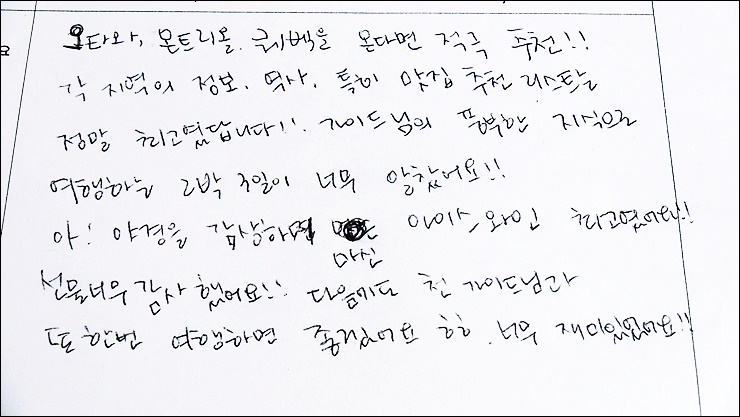 오타와, 몬트리올, 퀘벡을 온다면 적극 추천!!
각 지역의 정보, 역사, 특히 맛집 추천 리스트는
정말 최고였답니다!! 가이드님의 풍부한 지식으로
여행하는 2박 3일이 너무 알찼어요!!
아! 야경을 감상하며 아이스와인 최고였어요!!
마신
선물너무 감사했어요!! 다음에도 친 가이드님과
또한번 여행하면 좋겠어요 히히 너무 재미있었어요!!